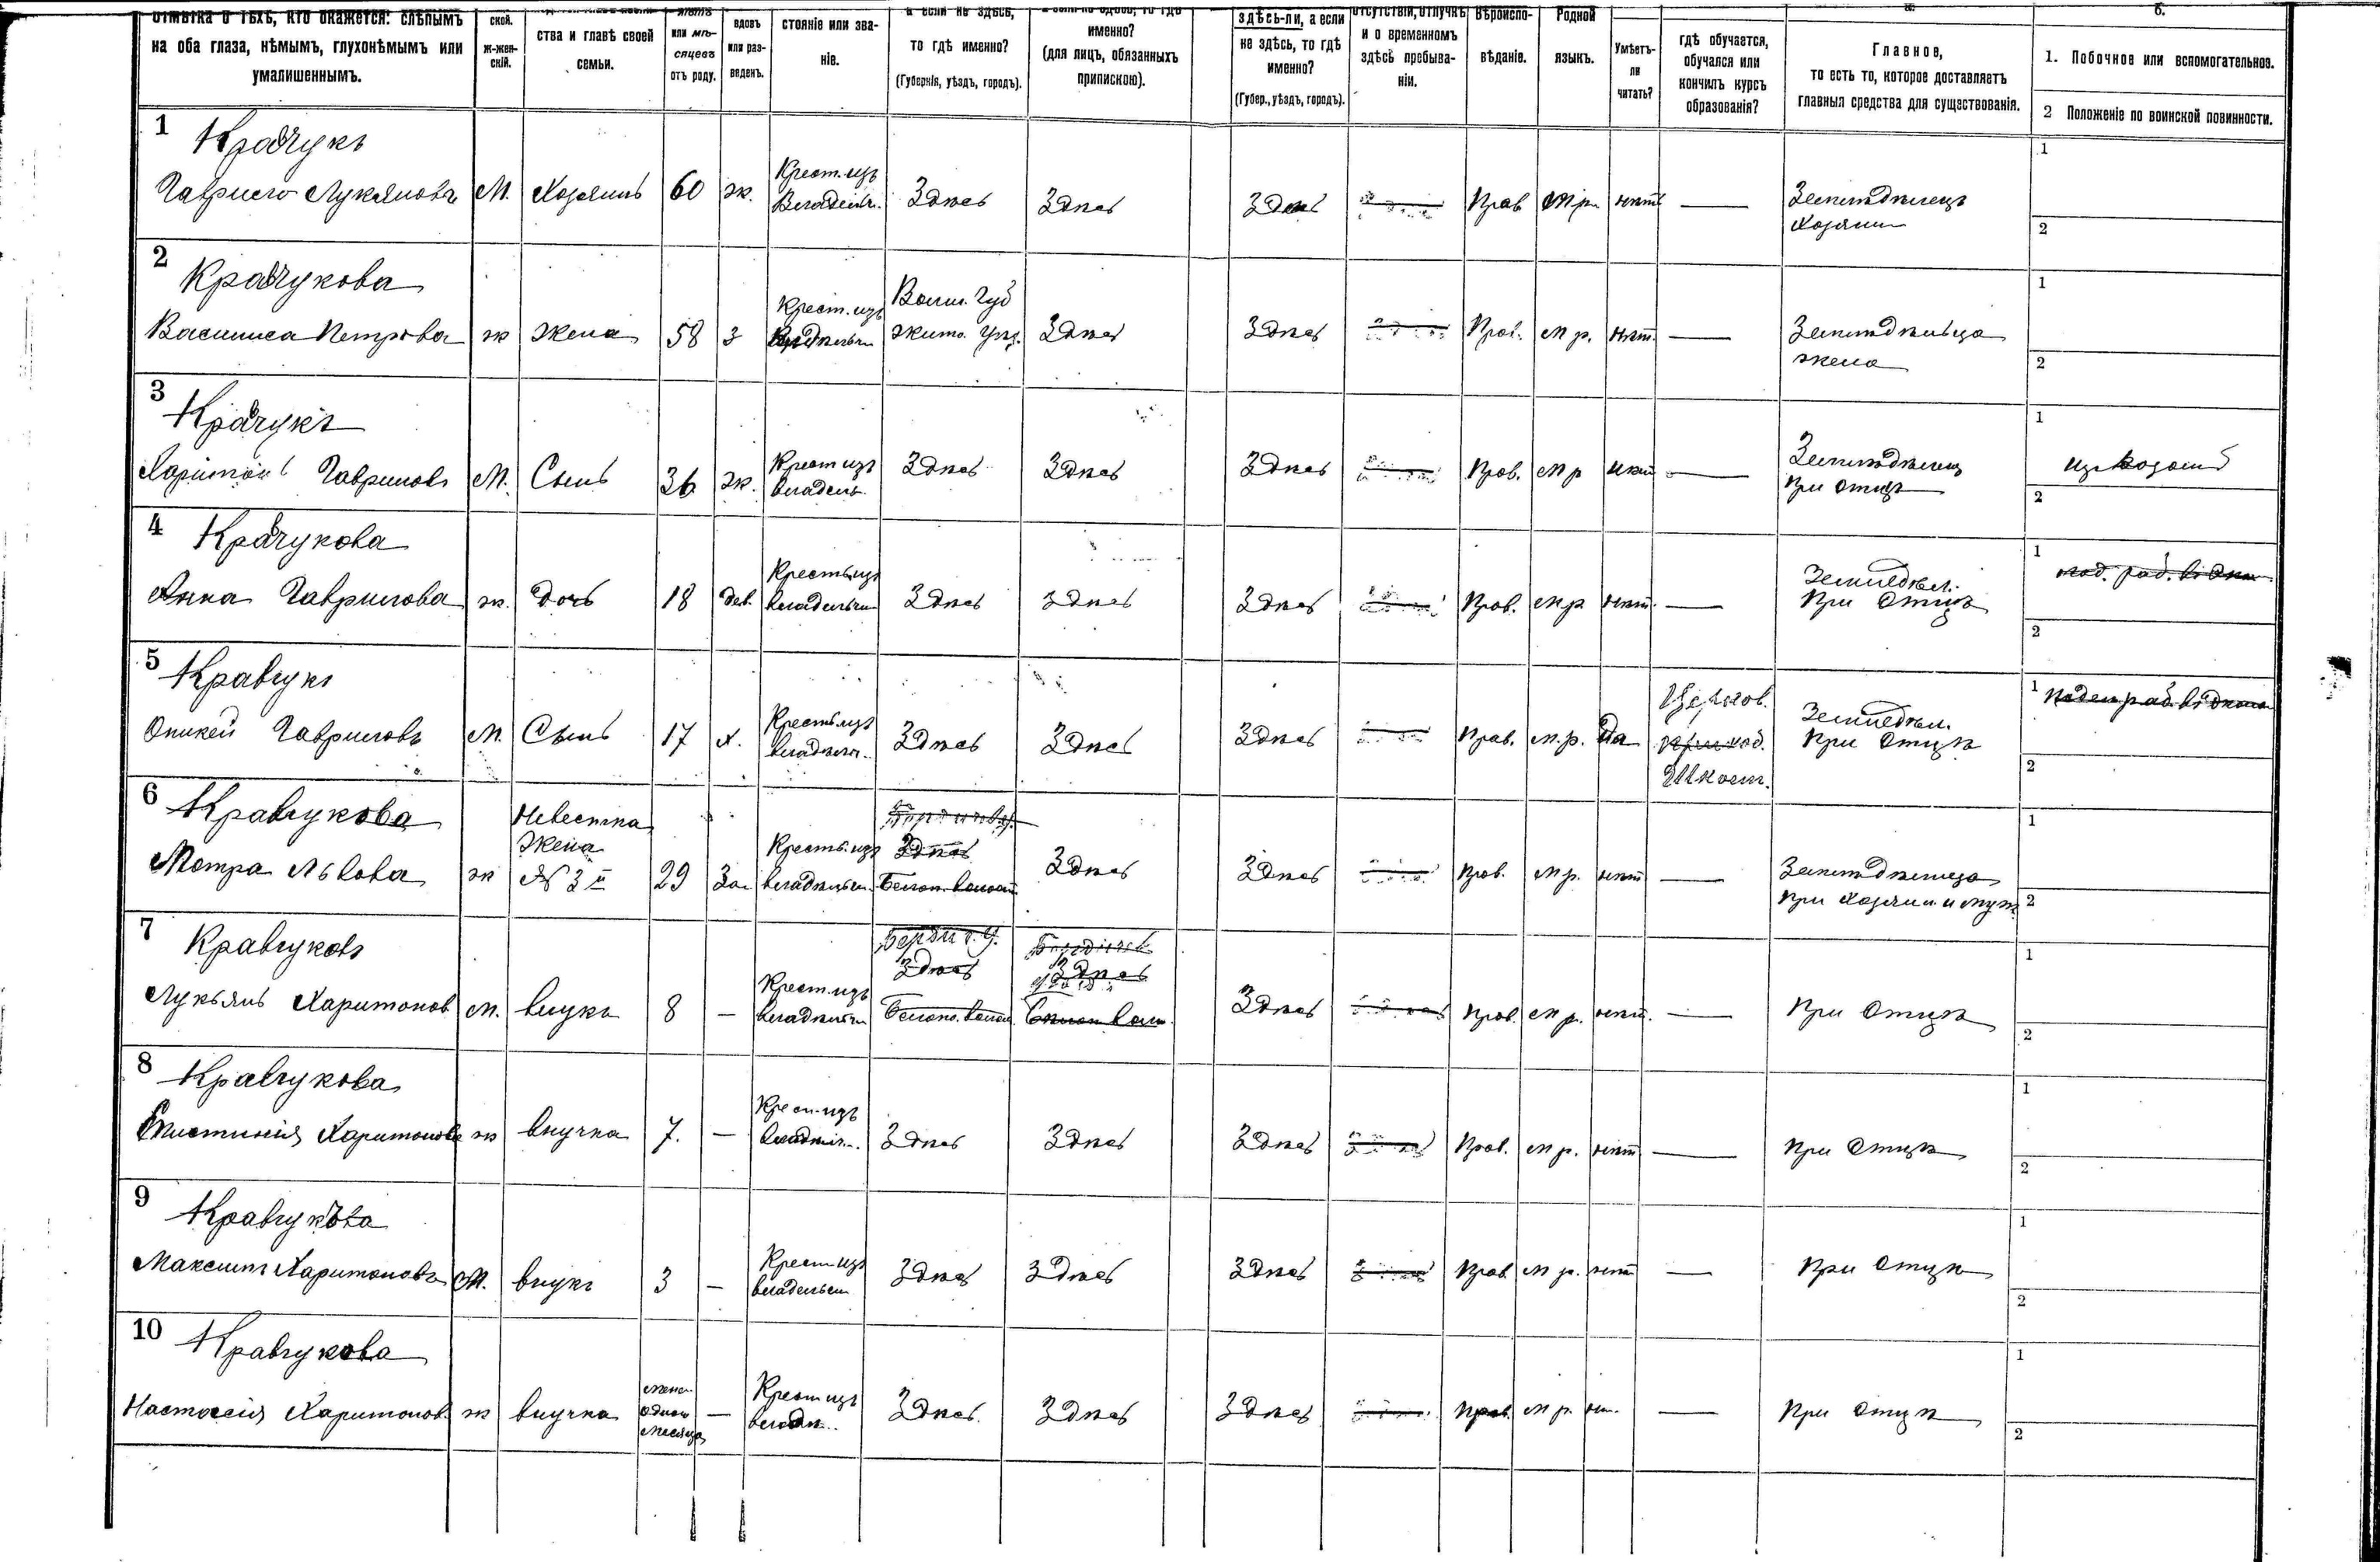 отмѣтка о тѣхъ, кто окажется: слѣпымъ
на оба глаза, нѣмымъ, глухонѣмымъ или
умалишеннымъ.
ской.
ж-жен-
скій.
ства и главѣ своей
семьи.
или мѣ-
сяцевъ
отъ роду.
вдовъ
или раз-
веденъ.
стояніе или зва-
ніе.
а если не здѣсь,
то гдѣ именно?
(Губернія, уѣздъ, городъ).
именно?
(для лицъ, обязанныхъ
припискою).
здѣсь-ли, а если
не здѣсь, то гдѣ
именно?
(Губер., уѣздъ, городъ).
отсутствіи, отлучкѣ
и о временномъ
здѣсь пребыва-
ніи.
Вѣроиспо-
вѣданіе.
Родной
языкъ.
Умѣетъ-
ли
читать?
гдѣ обучается,
обучался или
кончилъ курсъ
образованія?
а.
Главное,
то есть то, которое доставляетъ
главныя средства для существованія.
б.
1. Побочное или вспомогательное.
2 Положеніе по воинской повинности.
1 Кравчукъ
Гаврило Лукяновъ М. Хозяинъ 60 ж. Крест. изъ Здѣсь Здѣсь Здѣсь Прав м р. нѣтъ — Земледѣлецъ
Хозяин
1
2
2 Кравчукова
Василиса Петрова ж жена 58 з Крест. изъ Волын. Губ Жито. Уѣзд. Здѣсь Здѣсь Прав. м р. нѣт. — Земледѣльца
жена
1
2
3 Кравчукъ
Харитонъ Гаврилов М. Сынъ 36 ж. Крест изъ владель. Здѣсь Здѣсь Здѣсь Прав. м р нѣт — Земледѣлец
При отцѣ
1
2
4 Кравчукова
Анна Гаврилова ж. дочь 18 дев. Крест. изъ владельч Здѣсь Здѣсь Здѣсь Прав. м р нѣт. — Земледѣл.
При Отцѣ
1
2
5 Кравчукъ
Гавриловъ М. Сынъ 17 х. Крест. изъ владѣл. Здѣсь Здѣсь Здѣсь Прав. м. р. Да Земледѣл.
При Отцѣ
1
2
6 Кравчукова
Мотра Львова ж Невестка
Жена
№ 3 29 Зам Крест. изъ Здѣсь Здѣсь Здѣсь Прав. м р. нѣт — Земледѣлца
При Хозяин и муж
1
2
7 Кравчуковъ
Лукьянъ Харитонов м. внукъ 8 — Крест. изъ Здѣсь Здѣсь Здѣсь Прав. м р. нѣт. — При Отцѣ
1
2
8 Кравчукова
Харитонова ж внучка 7. — Крест. изъ Здѣсь Здѣсь Здѣсь Прав. м р. нѣт — При Отцѣ
1
2
9 Кравчукова
Максимъ Харитоновъ М. внукъ 3 — Крест изъ Здѣсь Здѣсь Здѣсь Прав м р. нѣт — При Отцѣ
1
2
10 Кравчукова
Настасия Харитонов. ж внучка менѣ
одного
месяца — Крест изъ Здѣсь Здѣсь Здѣсь Прав. м р. нѣт. — При Отцѣ
1
2